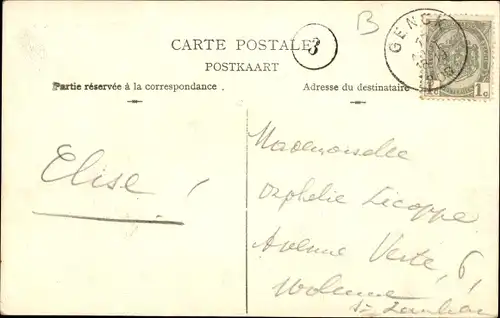 B
3
GENCK
CARTE POSTALE
POSTKAART
1c
Partie réservée à la correspondance
Adresse du destinataire
Elise !
Mademoiselle
Orphelie Licoppe
Avenue Verte, 6,
Woluwe
St Lambert